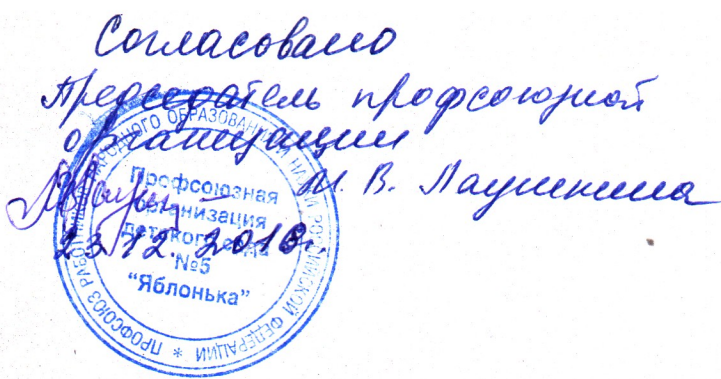 Согласовано
Председатель профсоюзной
организации
М. В. Лаушкина
23.12.2016г.
ПРОФСОЮЗ РАБОТНИКОВ НАРОДНОГО ОБРАЗОВАНИЯ И НАУКИ РОССИЙСКОЙ ФЕДЕРАЦИИ *
Профсоюзная
организация
детского сада
№5
"Яблонька"